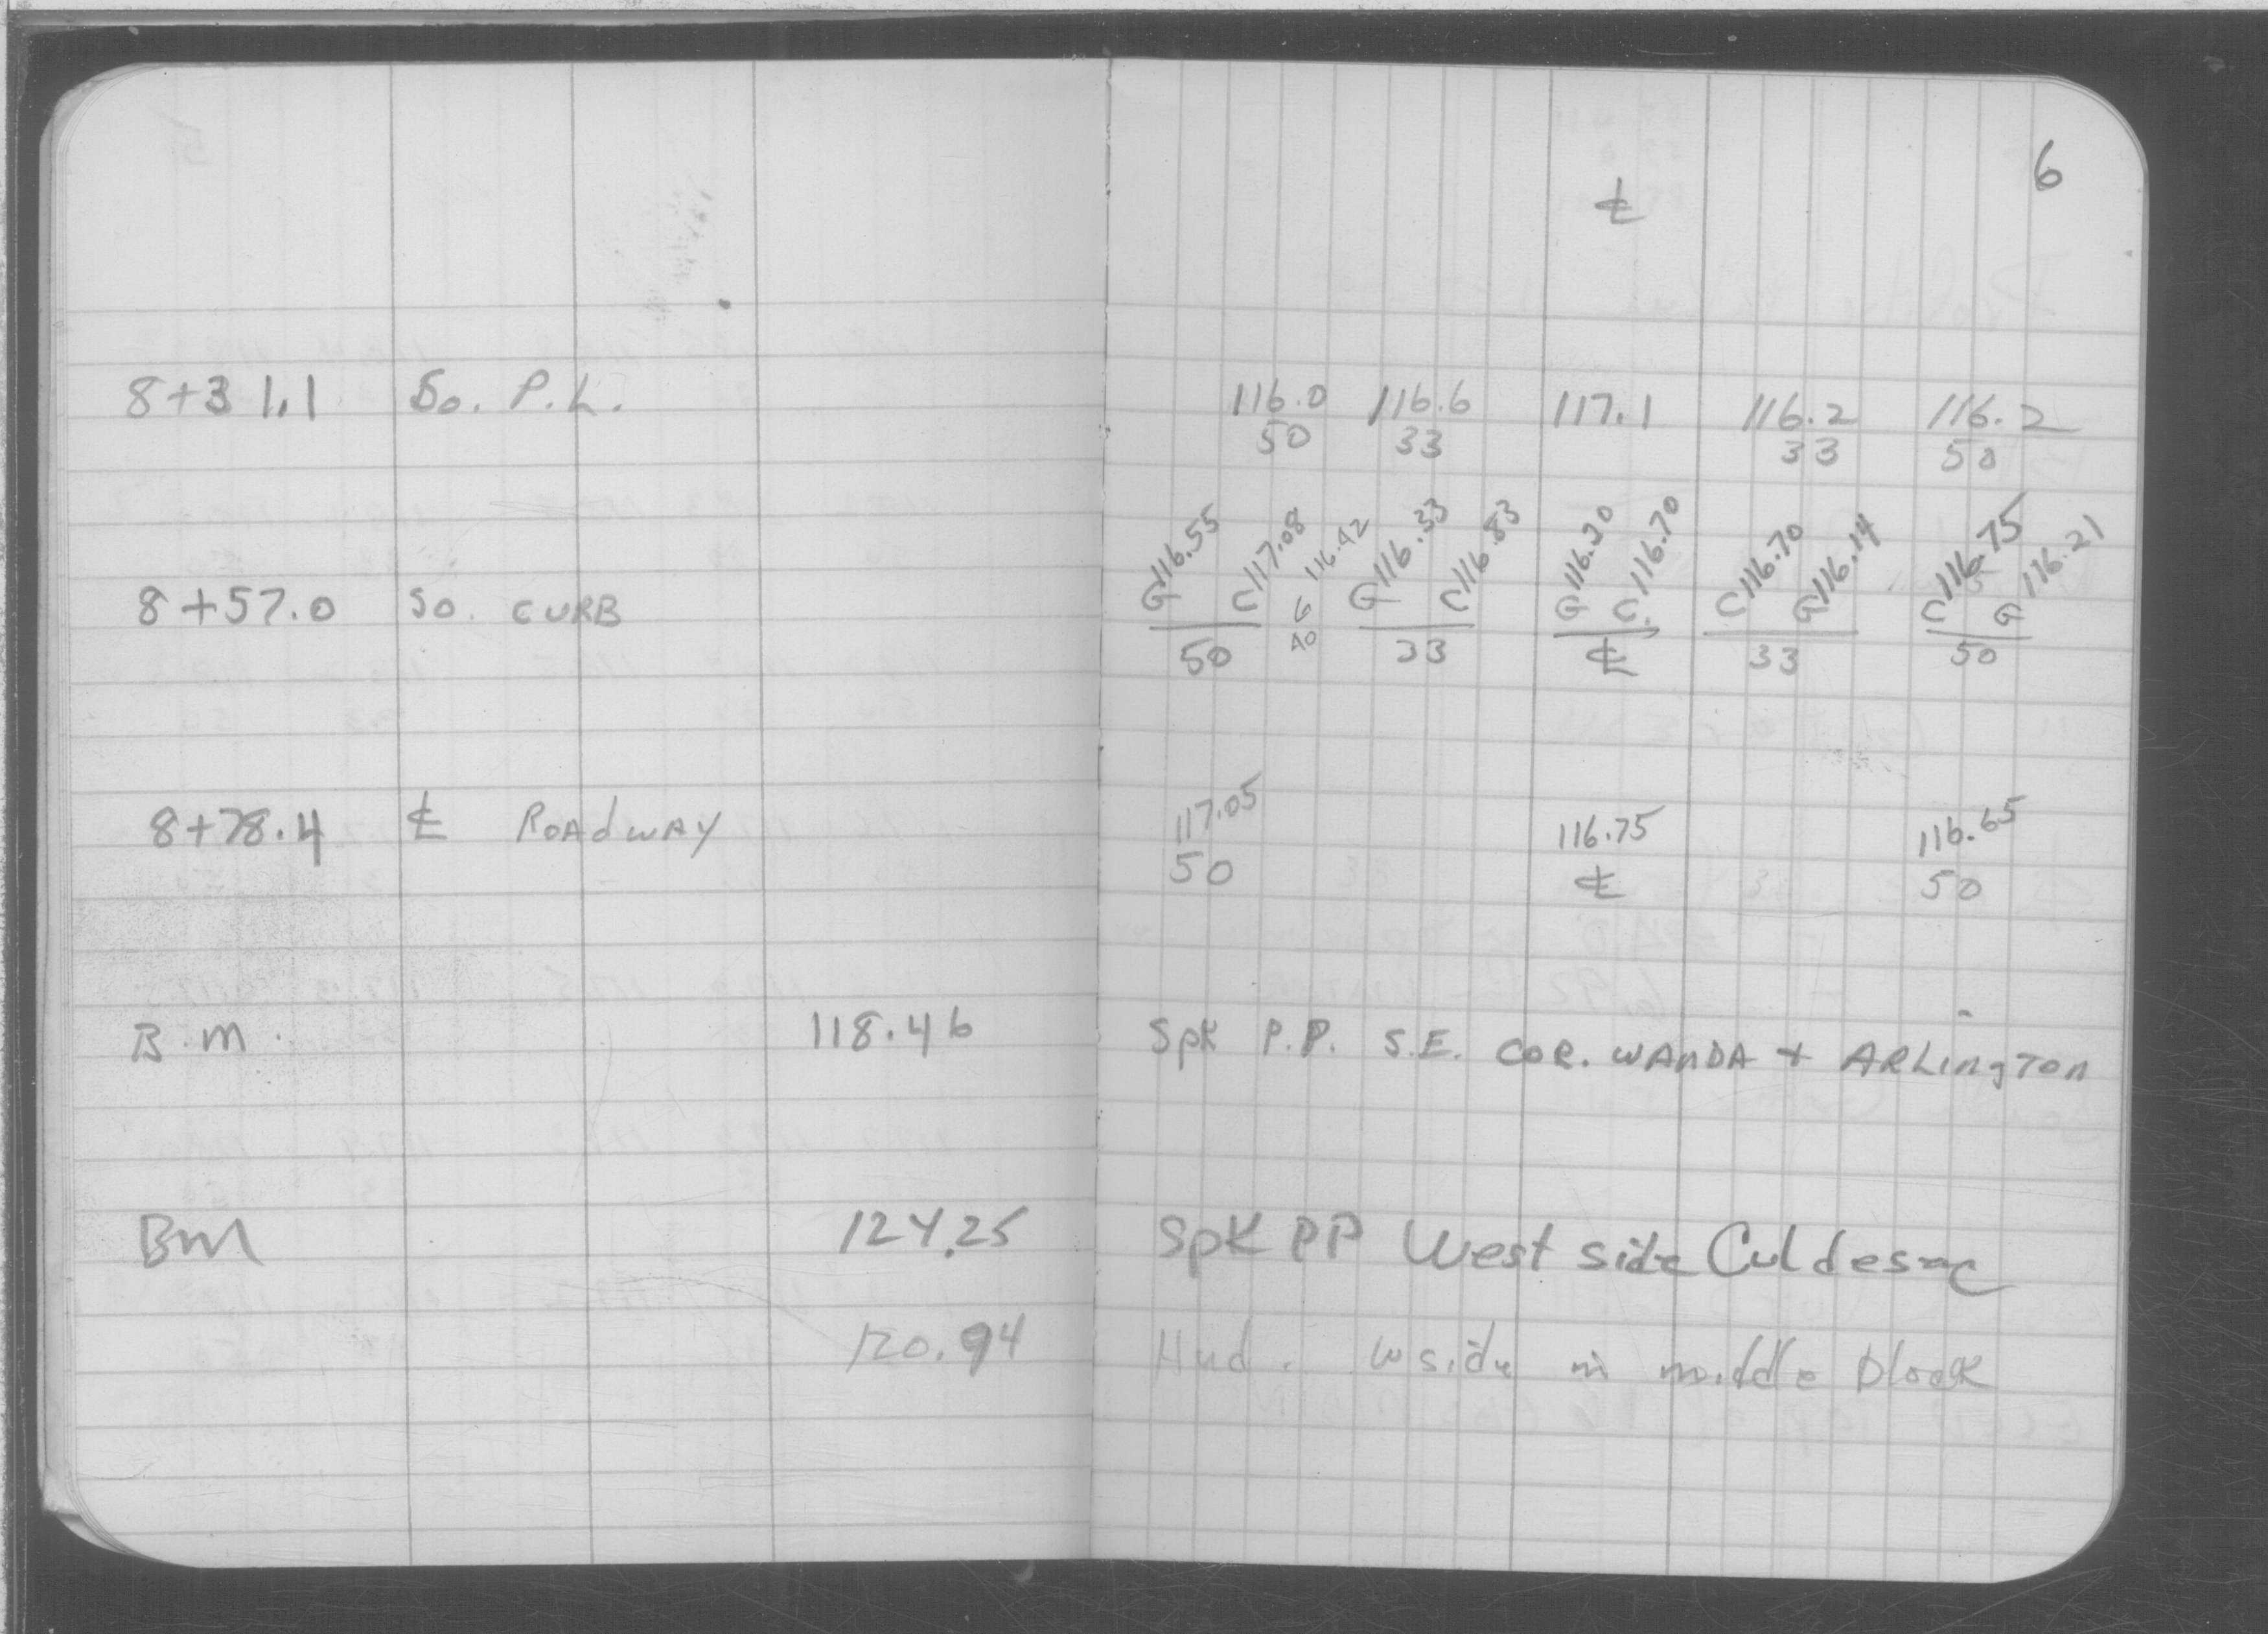 6
℄
8+31.1 So. P.L. 116.0 116.6 117.1 116.2 116.2
50 33 33 50
G116.55 C117.08 116.42 G116.33 C116.83 G116.20 C116.70 C116.70 G116.14 C116.75 G116.21
8+57.0 So. CURB G
50 40 33 ℄ 33 50
8+78.4 ℄ ROADWAY 117.05 116.75 116.65
50 ℄ 50
B.M. 118.46 SpK P.P. S.E. COR. WANDA + ARLington
BM 124.25 SpK PP West side Culdesac
120.94 Hud. W side in middle block